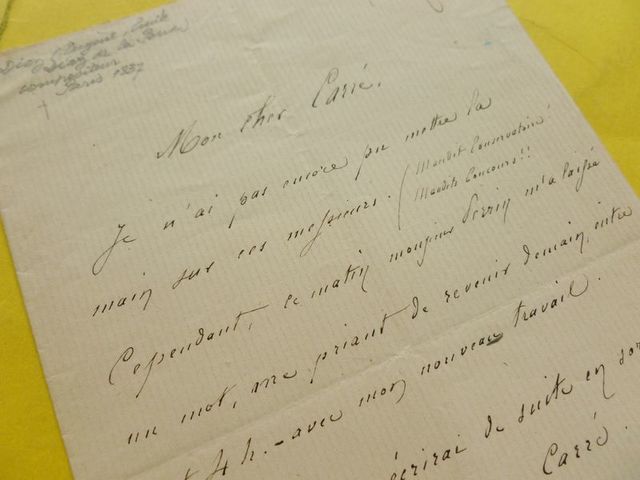 Diaz, Eugène, Emile
Diaz de la Pena
compositeur
Paris 1837
†
Mon cher Carré.
Je n'ai pas encore pu mettre la
main sur ces messieurs. (Maudit Conservatoire!
Maudits Concours!!
Cependant, ce matin monsieur Perrin m'a laissé
un mot, me priant de revenir demain, entre
4 h. - avec mon nouveau travail.
écrirai de suite en sor
Carré.